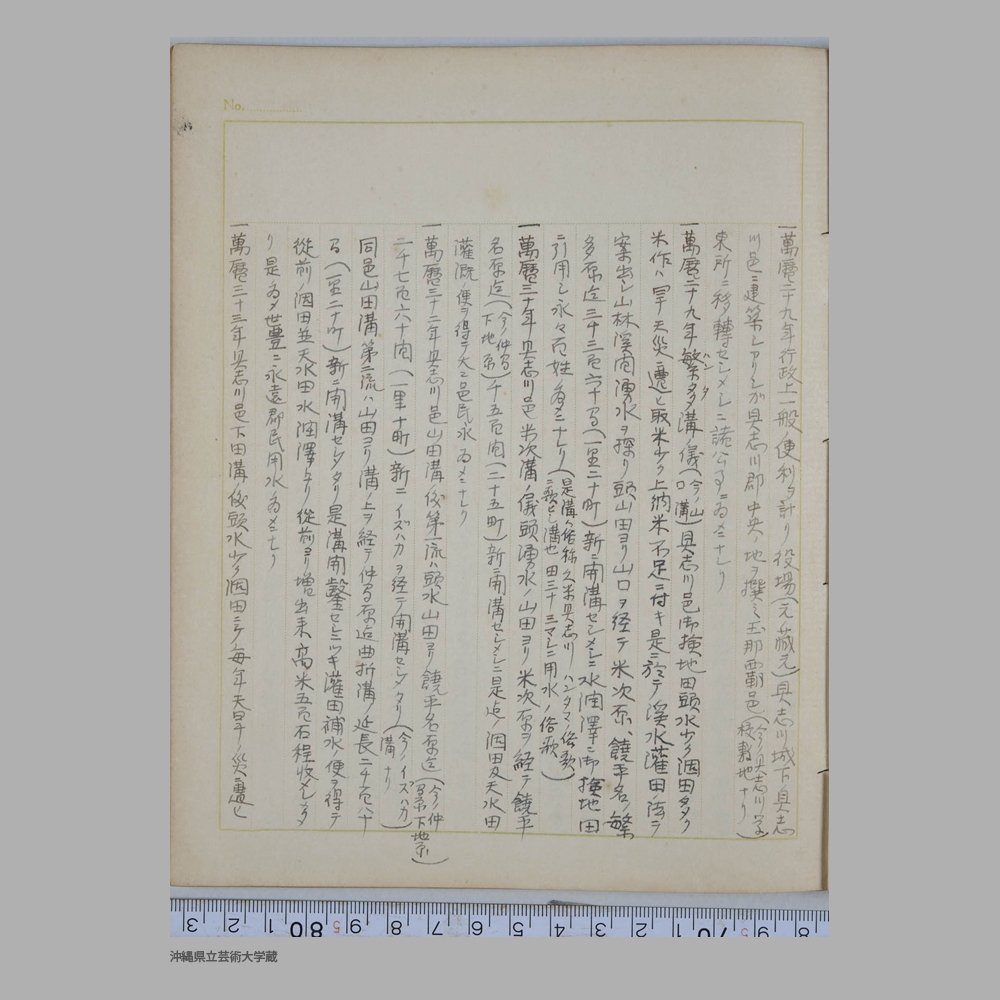 No.
一萬曆二十九年行政上一般ノ便利ヲ計リ役場(元ノ藏元)具志川城下具志
川邑ニ建築シアリシガ具志川郡中央ノ地ヲ撰ミ玉那覇邑(今ノ具志川字役敷地ナリ)
東所ニ移轉セシメシニ諸公事ニ為メニナレリ
一萬曆二十九年繁多溝ノ儀(今ノ山口溝)具志川邑御檢地田頭水少ク涸田多ク
米作ハ旱ノ天災ニ遭ヒ取米少ク上納米不足ニ付キ是ニ於テ溪水灌田ノ法ヲ
案出シ山林溪間湧水ヲ探リ頭山田ヨリ山口ヲ経テ米次原、饒平名ノ繁
多原迄三千三百六十間(一里二十町)新ニ開溝セシメシニ水潤澤ニ御檢地田
ニ引用シ永々百姓ノ為メニナレリ(是溝ノ俗稱久米具志川ハンタマノ俗歌ニ歌ヒシ溝也田三十三マシニ用水ノ俗歌)
一萬曆三十年具志川邑米次溝ノ儀頭湧水ノ山田ヨリ米次原ヲ経テ饒平
名原迄(今ノ仲間下地原)千五百間(二十五町)新ニ開溝セシメシニ是迄ノ涸田及天水田
灌漑ノ便ヲ得テ大ニ邑民永為メニナレリ
一萬曆三十二年具志川邑山田溝ノ儀第一流ハ頭水山田ヨリ饒平名原迄(今ノ仲間原下地原)
二千七百六十間(一里十町)新ニイズハカヲ経テ開溝セシメタリ(今ノイズハカ溝ナリ)
同邑山田溝第二流ハ山田ヨリ溝ノ上ヲ経テ仲間原迄曲折溝ノ延長二千百八十
間(一里二十町)新ニ開溝セシメタリ是溝開鑿セシニツキ灌田補水ノ便ヲ得テ
從前ノ涸田並天水田水潤澤トナリ從前ヨリ増出来高米五百石程收メシメタ
リ是為メ世豊ニ永遠郡民用水ノ為メニナレリ
一萬曆三十三年具志川邑下田溝ノ儀頭水少ク涸田ニテ毎年天旱ノ災ニ遭ヒ
3 2 1 80 9 8 7 6 5 4 3 2 1 70 9 8
沖縄県立芸術大学蔵